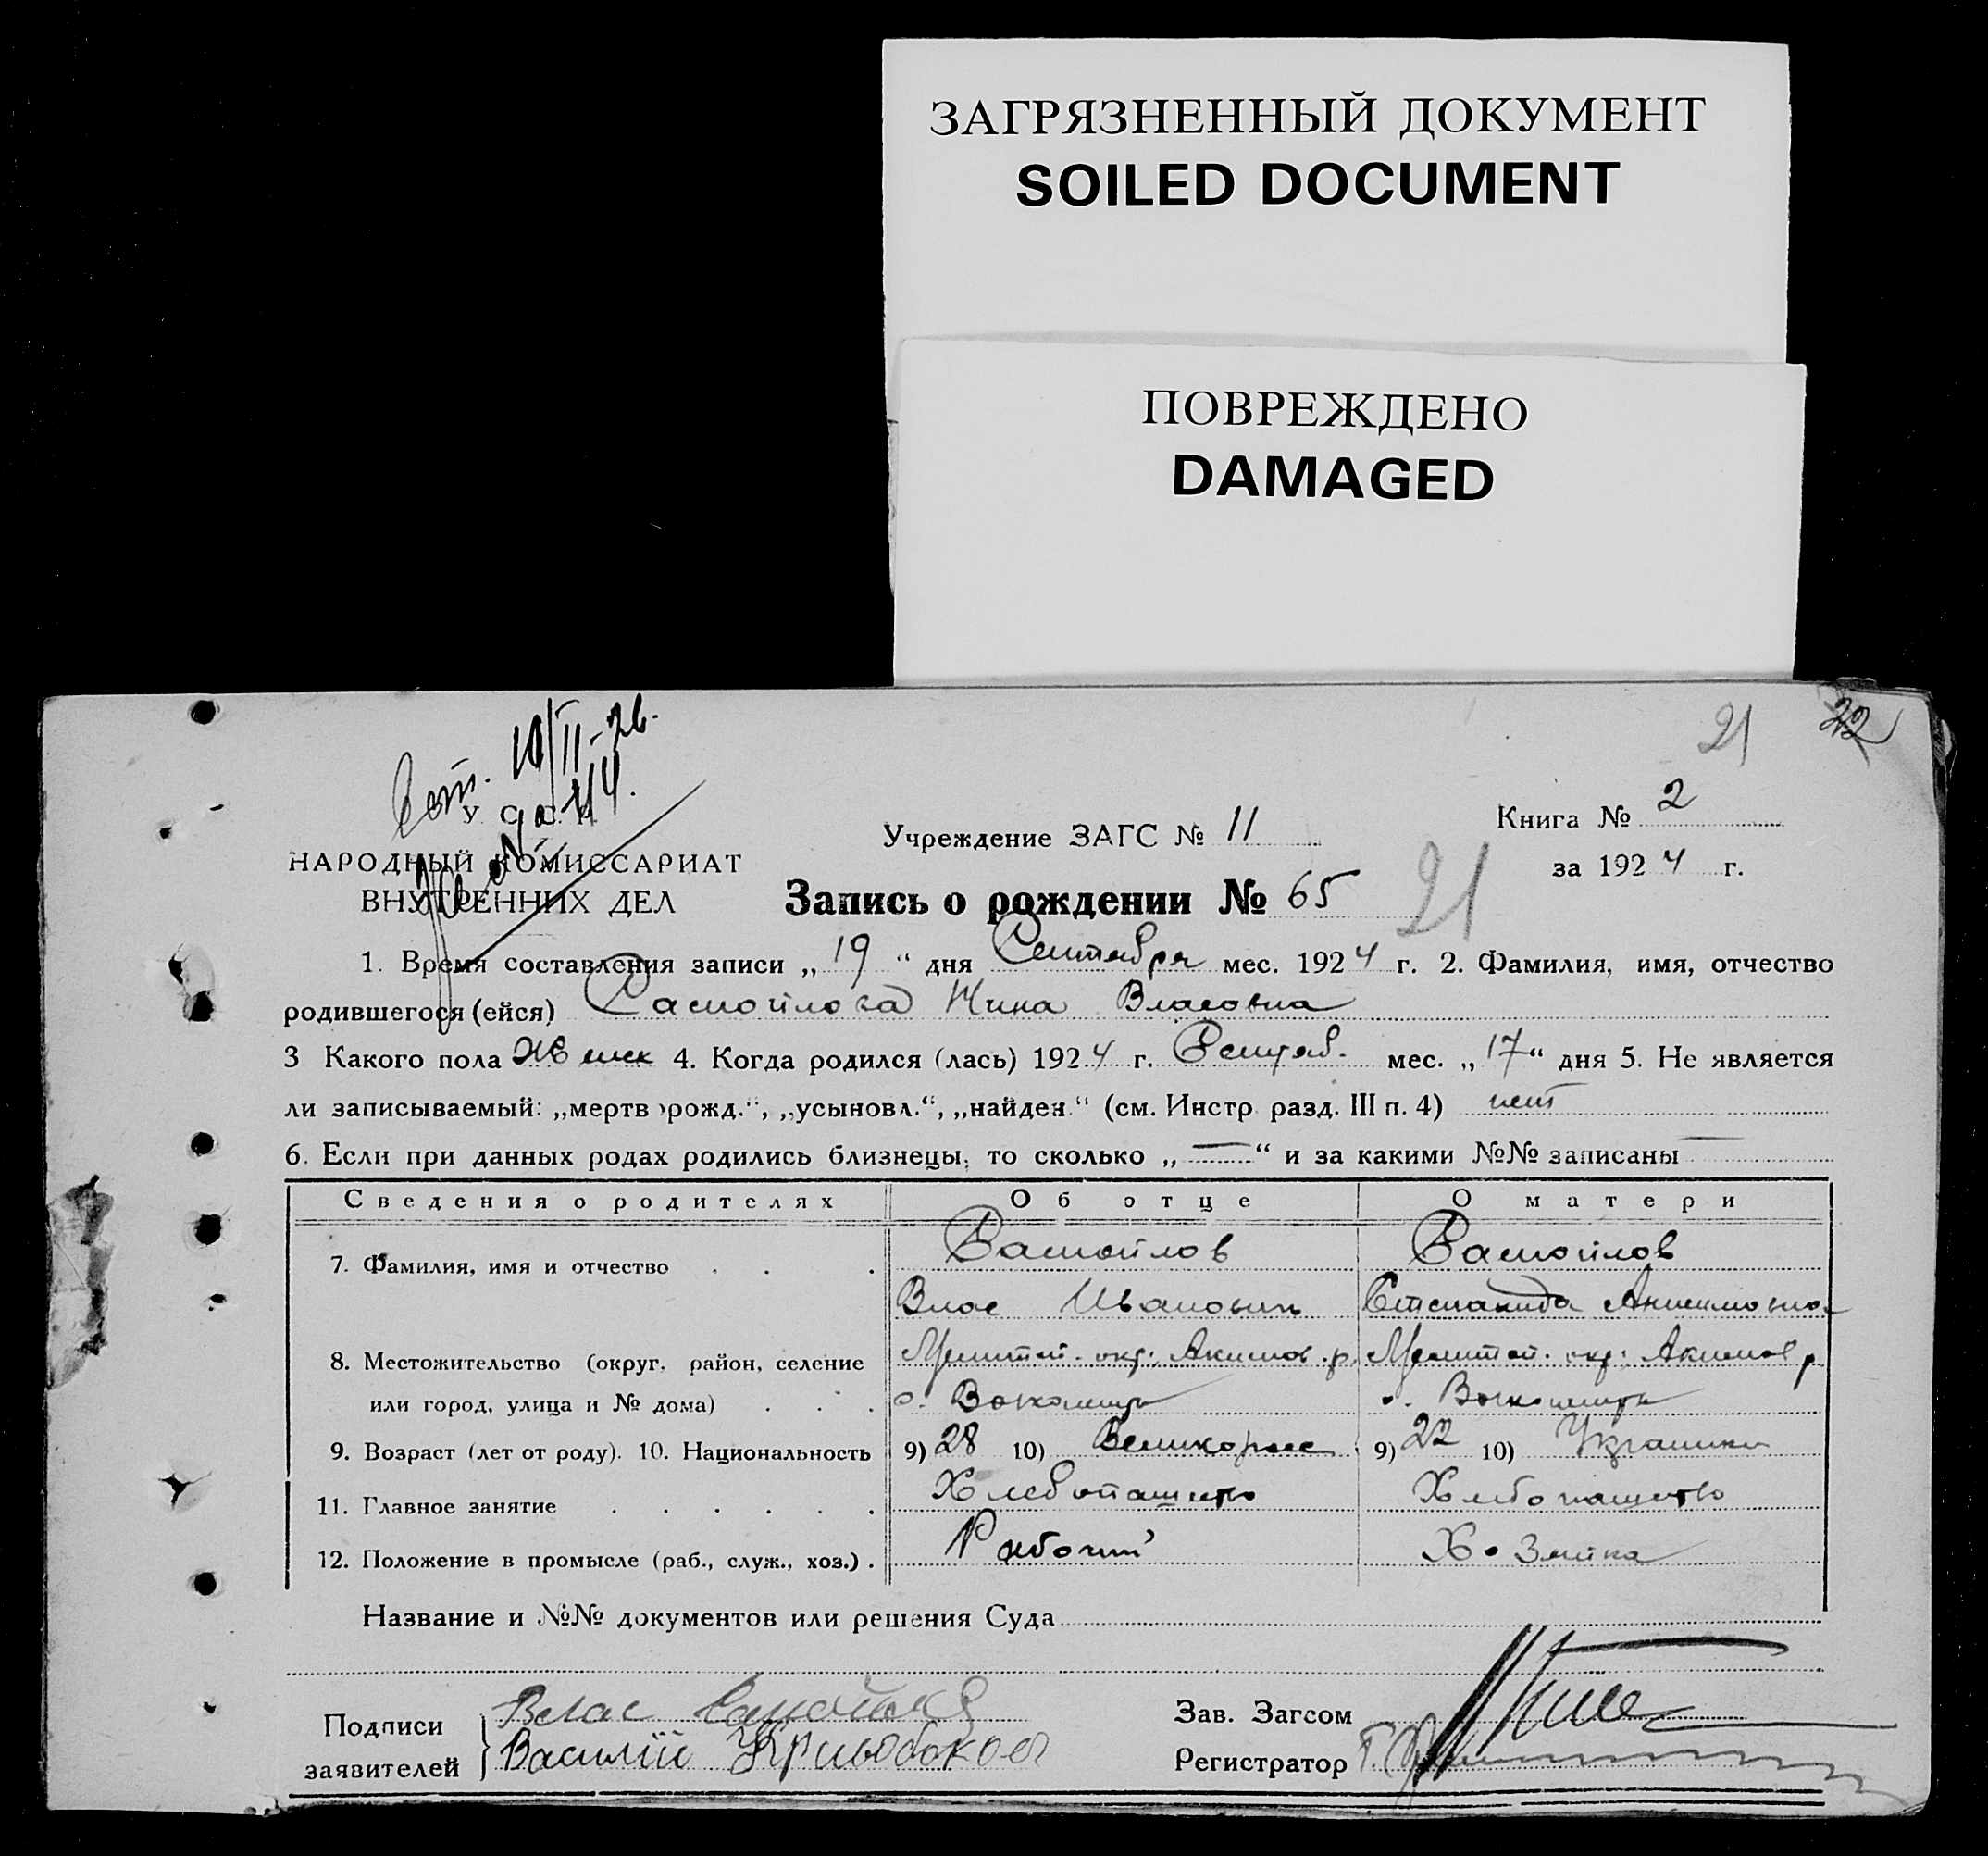 ЗАГРЯЗНЕННЫЙ ДОКУМЕНТ
SOILED DOCUMENT
ПОВРЕЖДЕНО
DAMAGED
21 22
10/II-26.
№ 44.
У. С. С. Р.
НАРОДНЫЙ КОМИССАРИАТ
ВНУТРЕННИХ ДЕЛ
Учреждение ЗАГС № 11
Книга № 2
за 1924 г.
Запись о рождении № 65
21
1. Время составления записи „ 19 “ дня Сентября мес. 1924 г. 2. Фамилия, имя, отчество
родившегося (ейся) Самойлова Нина Власовна
3 Какого пола Женск 4. Когда родился (лась) 1924 г. Сентяб. мес. „ 17 “ дня 5. Не является
ли записываемый: „мертворожд.“, „усыновл.“, „найден.“ (см. Инстр. разд. III п. 4) нет
6. Если при данных родах родились близнецы, то сколько „ — “ и за какими №№ записаны —
Сведения о родителях Об отце О матери
7. Фамилия, имя и отчество . . . Самойлов Самойлов
Влас Иванович Степанида Анисимовна
8. Местожительство (округ, район, селение Мелитоп. окр. Акимов. р. Мелитоп. окр. Акимов р
или город, улица и № дома) . . .
9. Возраст (лет от роду). 10. Национальность 9) 28 10) Великоросс 9) 22 10) Украинка
11. Главное занятие . . . . . . Хлебопашество Хлебопашество
12. Положение в промысле (раб., служ., хоз.) . Рабочий Хозяйка
Название и №№ документов или решения Суда
Подписи Влас Самойлов
заявителей Василій Кривобоков
Зав. Загсом
Регистратор